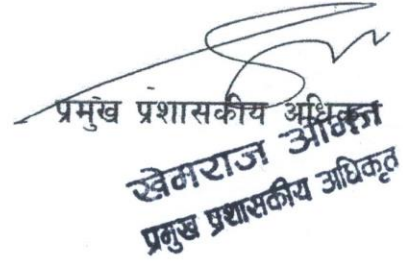 प्रमुख प्रशासकीय अधिकृत
खेमराज
प्रमुख प्रशासकीय अधिकृत